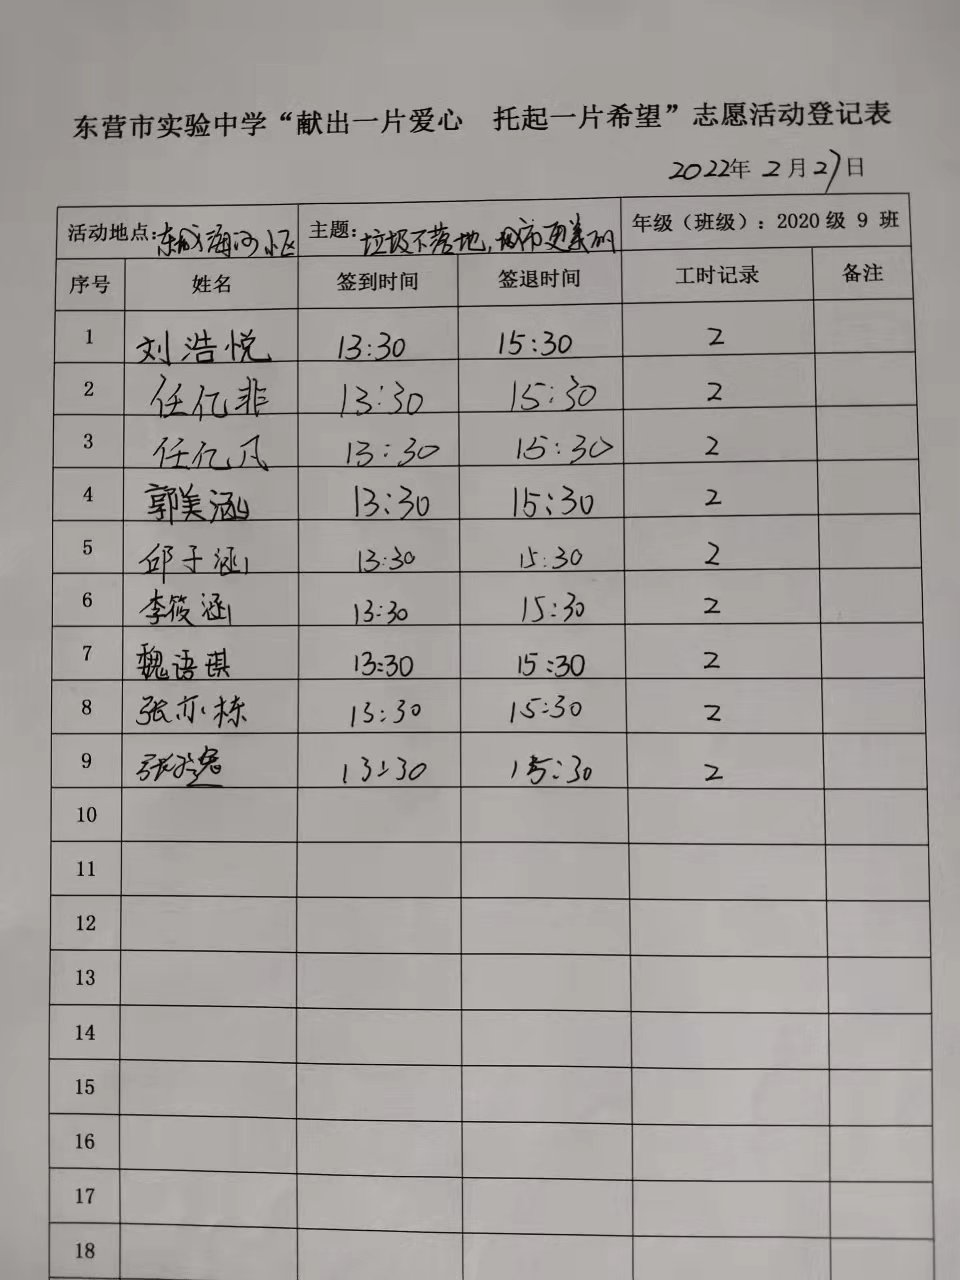 东营市实验中学“献出一片爱心 托起一片希望”志愿活动登记表
2022年2月27日
活动地点:东城海河小区 主题:垃圾不落地,城市更美丽 年级（班级）：2020级 9 班
序号 姓名 签到时间 签退时间 工时记录 备注
1 刘浩悦 13:30 15:30 2
2 任亿非 13:30 15:30 2
3 任亿凡 13:30 15:30 2
4 郭美涵 13:30 15:30 2
5 邱子涵 13:30 15:30 2
6 李筱涵 13:30 15:30 2
7 魏语琪 13:30 15:30 2
8 张亦栋 13:30 15:30 2
9 张 逸 13:30 15:30 2
10
11
12
13
14
15
16
17
18